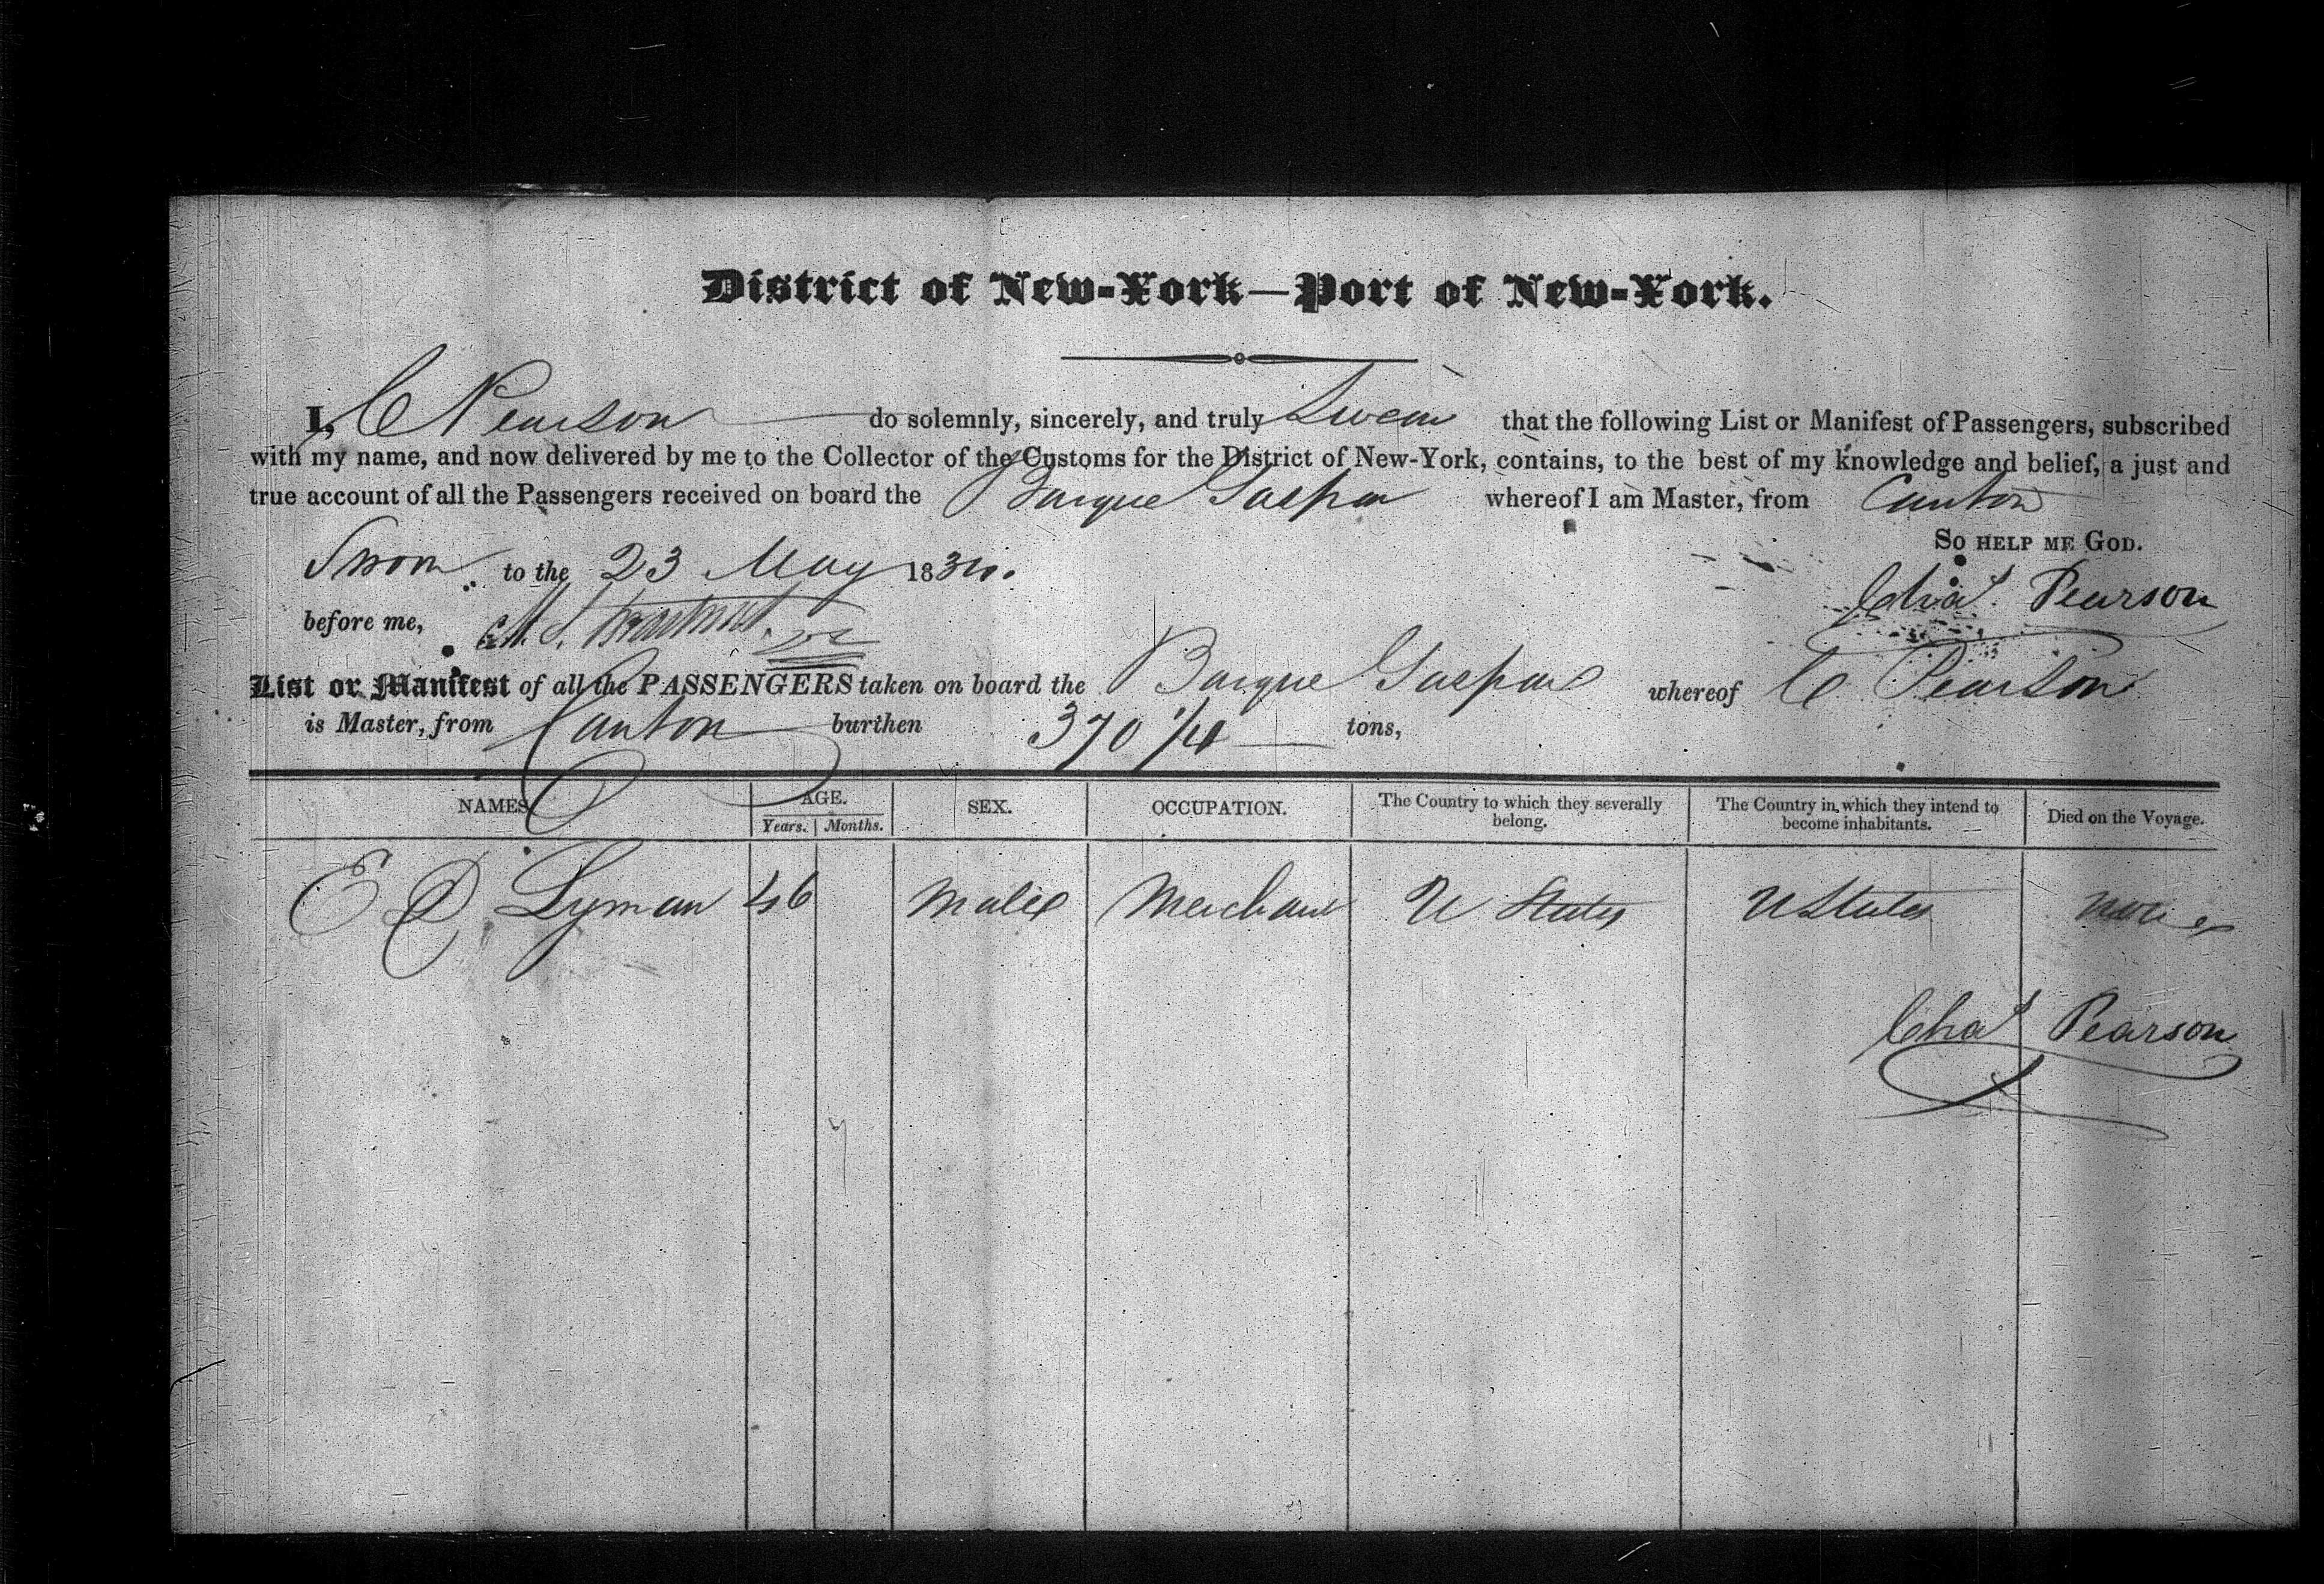 District of New-York—Port of New-York.
I, C Pearson do solemnly, sincerely, and truly Swear that the following List or Manifest of Passengers, subscribed
with my name, and now delivered by me to the Collector of the Customs for the District of New-York, contains, to the best of my knowledge and belief, a just and
true account of all the Passengers received on board the Barque Gaspar whereof I am Master, from Canton
So help me God.
Sworn to the 23 May 183
Chas Pearson
before me,
List or Manifest of all the PASSENGERS taken on board the Barque Gaspar whereof C Pearson
is Master, from Canton burthen 370 tons,
NAMES AGE. SEX. OCCUPATION. The Country to which they severally belong. The Country in which they intend to become inhabitants. Died on the Voyage.
Years. Months.
E D Lyman 46 Male Merchant U States U States none
Chas Pearson